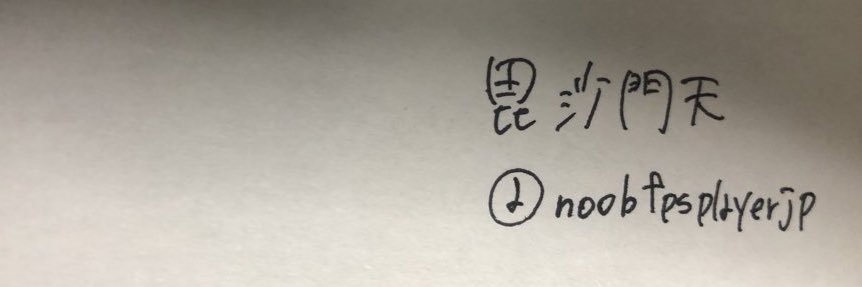 毘沙門天
@noobfpsplayerjp